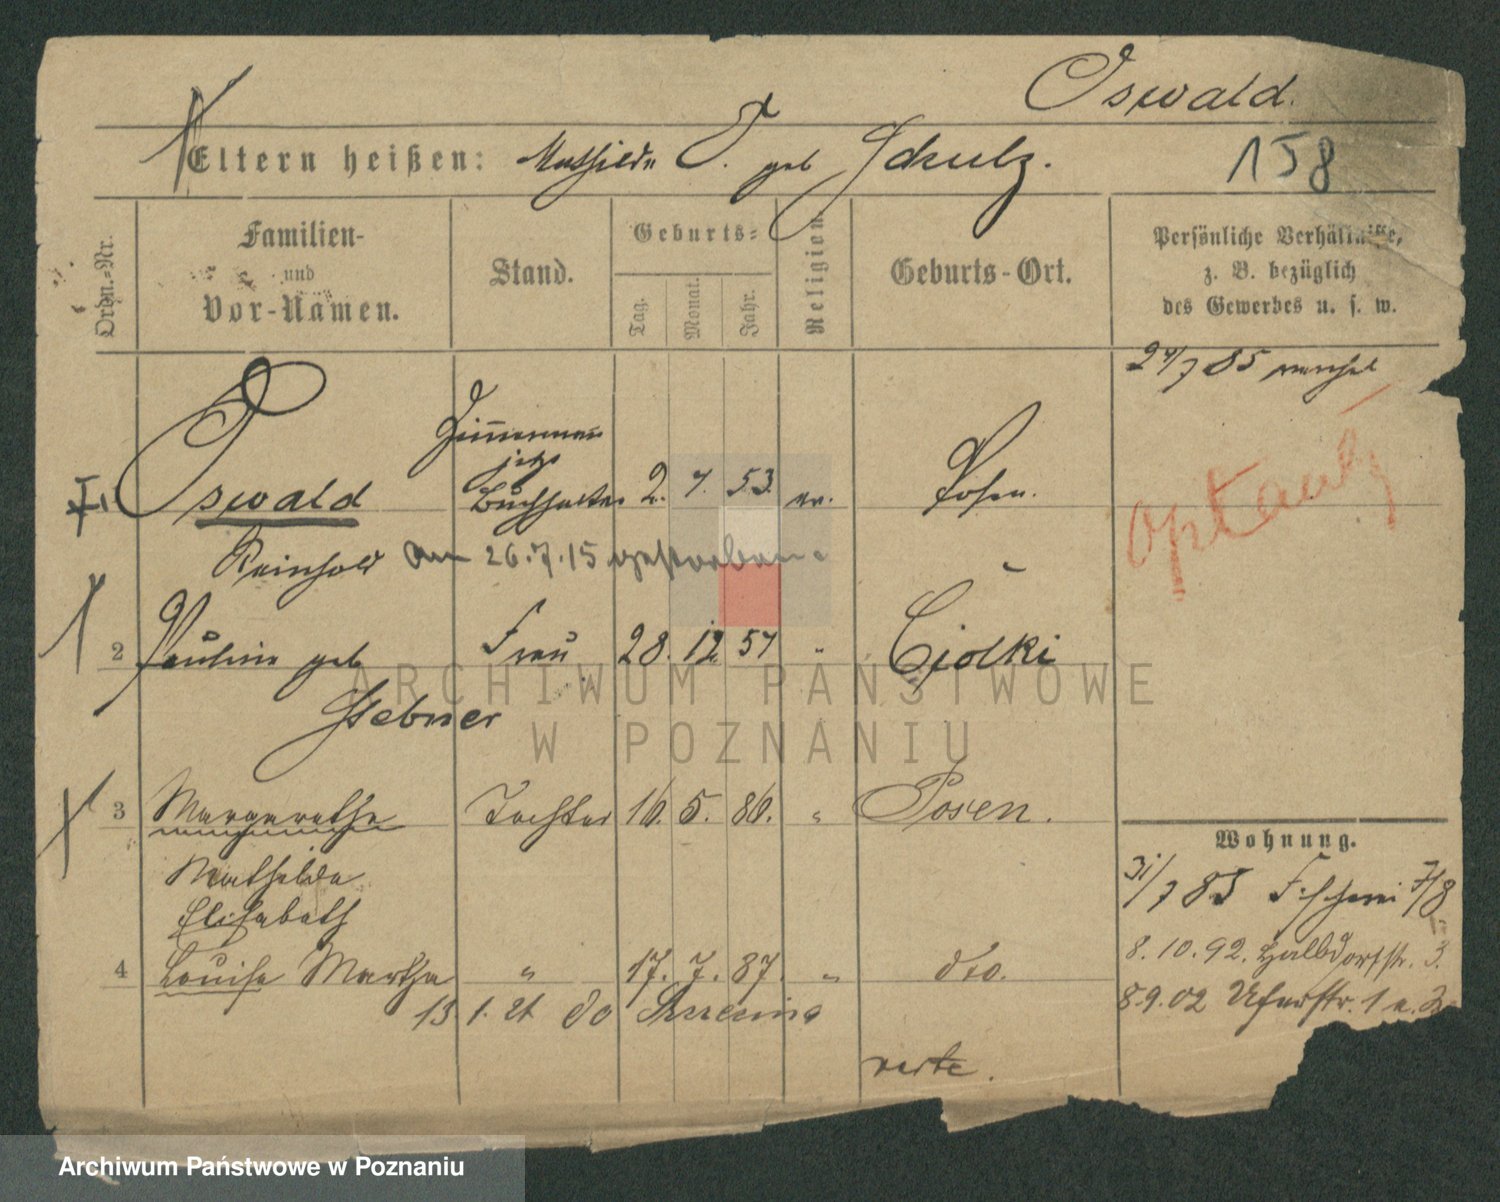 Oswald.
Eltern heißen: Mathilde O. geb Schulz.
158
Ordn.-Nr.
Familien-
und
Vor-Namen.
Stand.
Geburts-
Tag.
Monat.
Jahr.
Religion
Geburts-Ort.
Persönliche Verhältnisse,
z. B. bezüglich
des Gewerbes u. s. w.
Zimmermann
jetzt
1 Oswald Buchhalter 2. 7. 53. ev. Posen.
Reinhold am 26.7.15 gestorben
2 Pauline geb Frau 28. 12 57 "
Hebner
3 Margarethe Tochter 16. 5. 86. " Posen.
Mathilde
Elisabeth
4 Louise Martha " 17. 7. 87. " dto.
13 1. 21 do
verte.
7 85
Wohnung.
31/7 85 Fischerei 7/8
8.10.92. Halbdorfstr. 3.
8.9.02 Uferstr. 1
ARCHIWUM PAŃSTWOWE
W POZNANIU
Archiwum Państwowe w Poznaniu